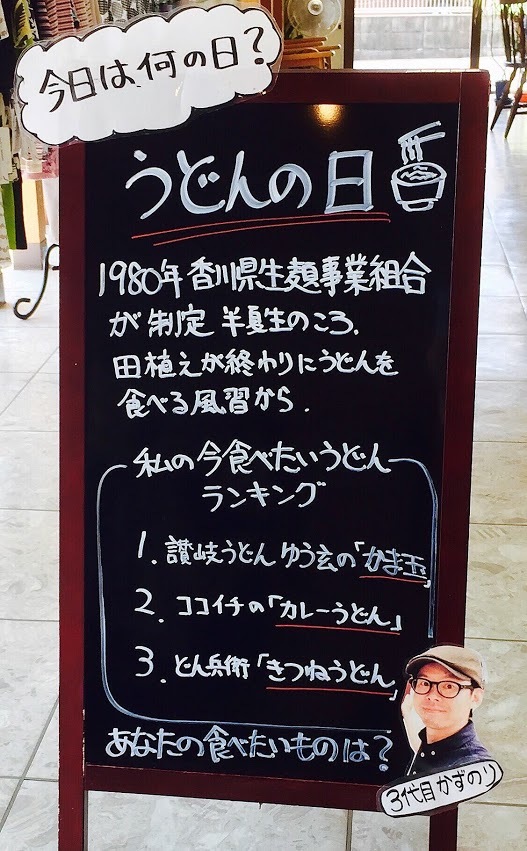 今日は何の日?
うどんの日
1980年香川県生麺事業組合
が制定 半夏生のころ、
田植えが終わりにうどんを
食べる風習から.
私の今食べたいうどん
ランキング
1. 讃岐うどん ゆう玄の「かま玉」
2. ココイチの「カレーうどん」
3. どん兵衛「きつねうどん」
あなたの食べたいものは?
3代目かずのり